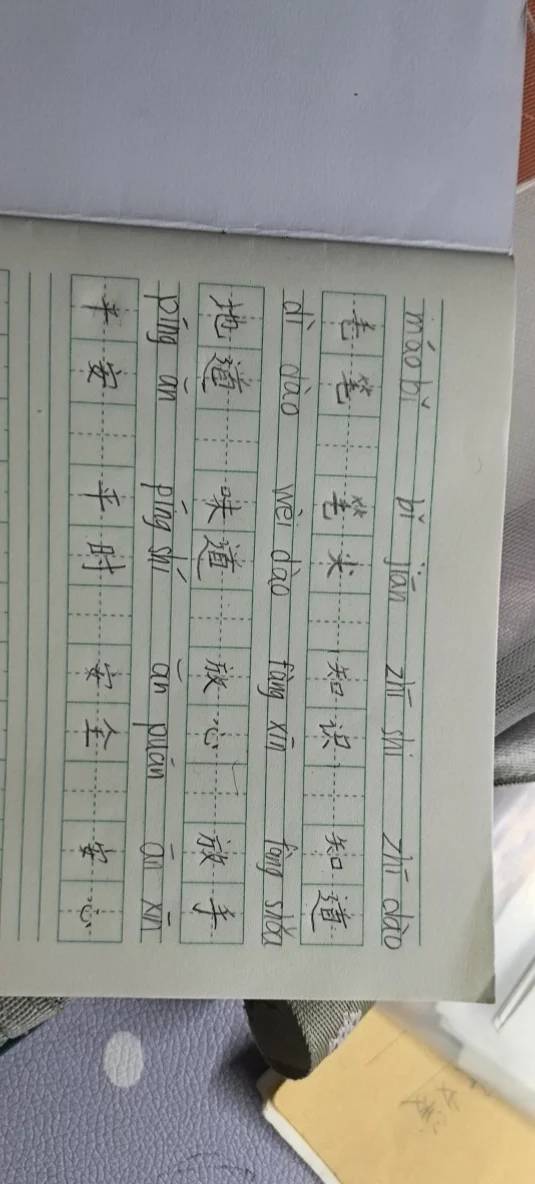 máo bǐ bǐ jiān zhī shi zhī dào
毛笔 笔尖 知识 知道
dì dào wèi dào fàng xīn fàng shǒu
地道 味道 放心 放手
píng ān píng shí ān quán ān xīn
平安 平时 安全 安心